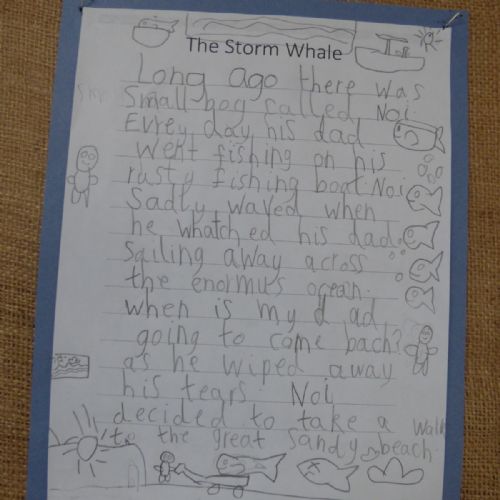 The Storm Whale
Long ago there was
Small bog called Noi
Evrey day his dad
went fishing on his
rusty fishing boat. Noi
Sadly waved when
he whatched his dad
sailing away across
the enormus ocean.
when is my dad
going to come bach?
as he wiped away
his tears. Noi
decided to take a walk
to the great Sandy beach.